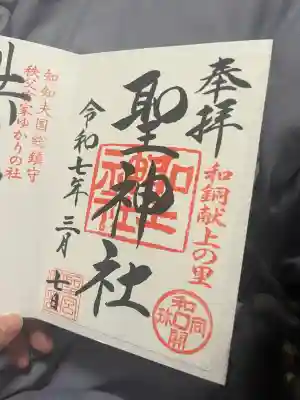 奉拝
和銅献上の里
聖神社
令和七年三月七日
和同開珎
知知夫国総鎮守
秩父宮家ゆかりの社